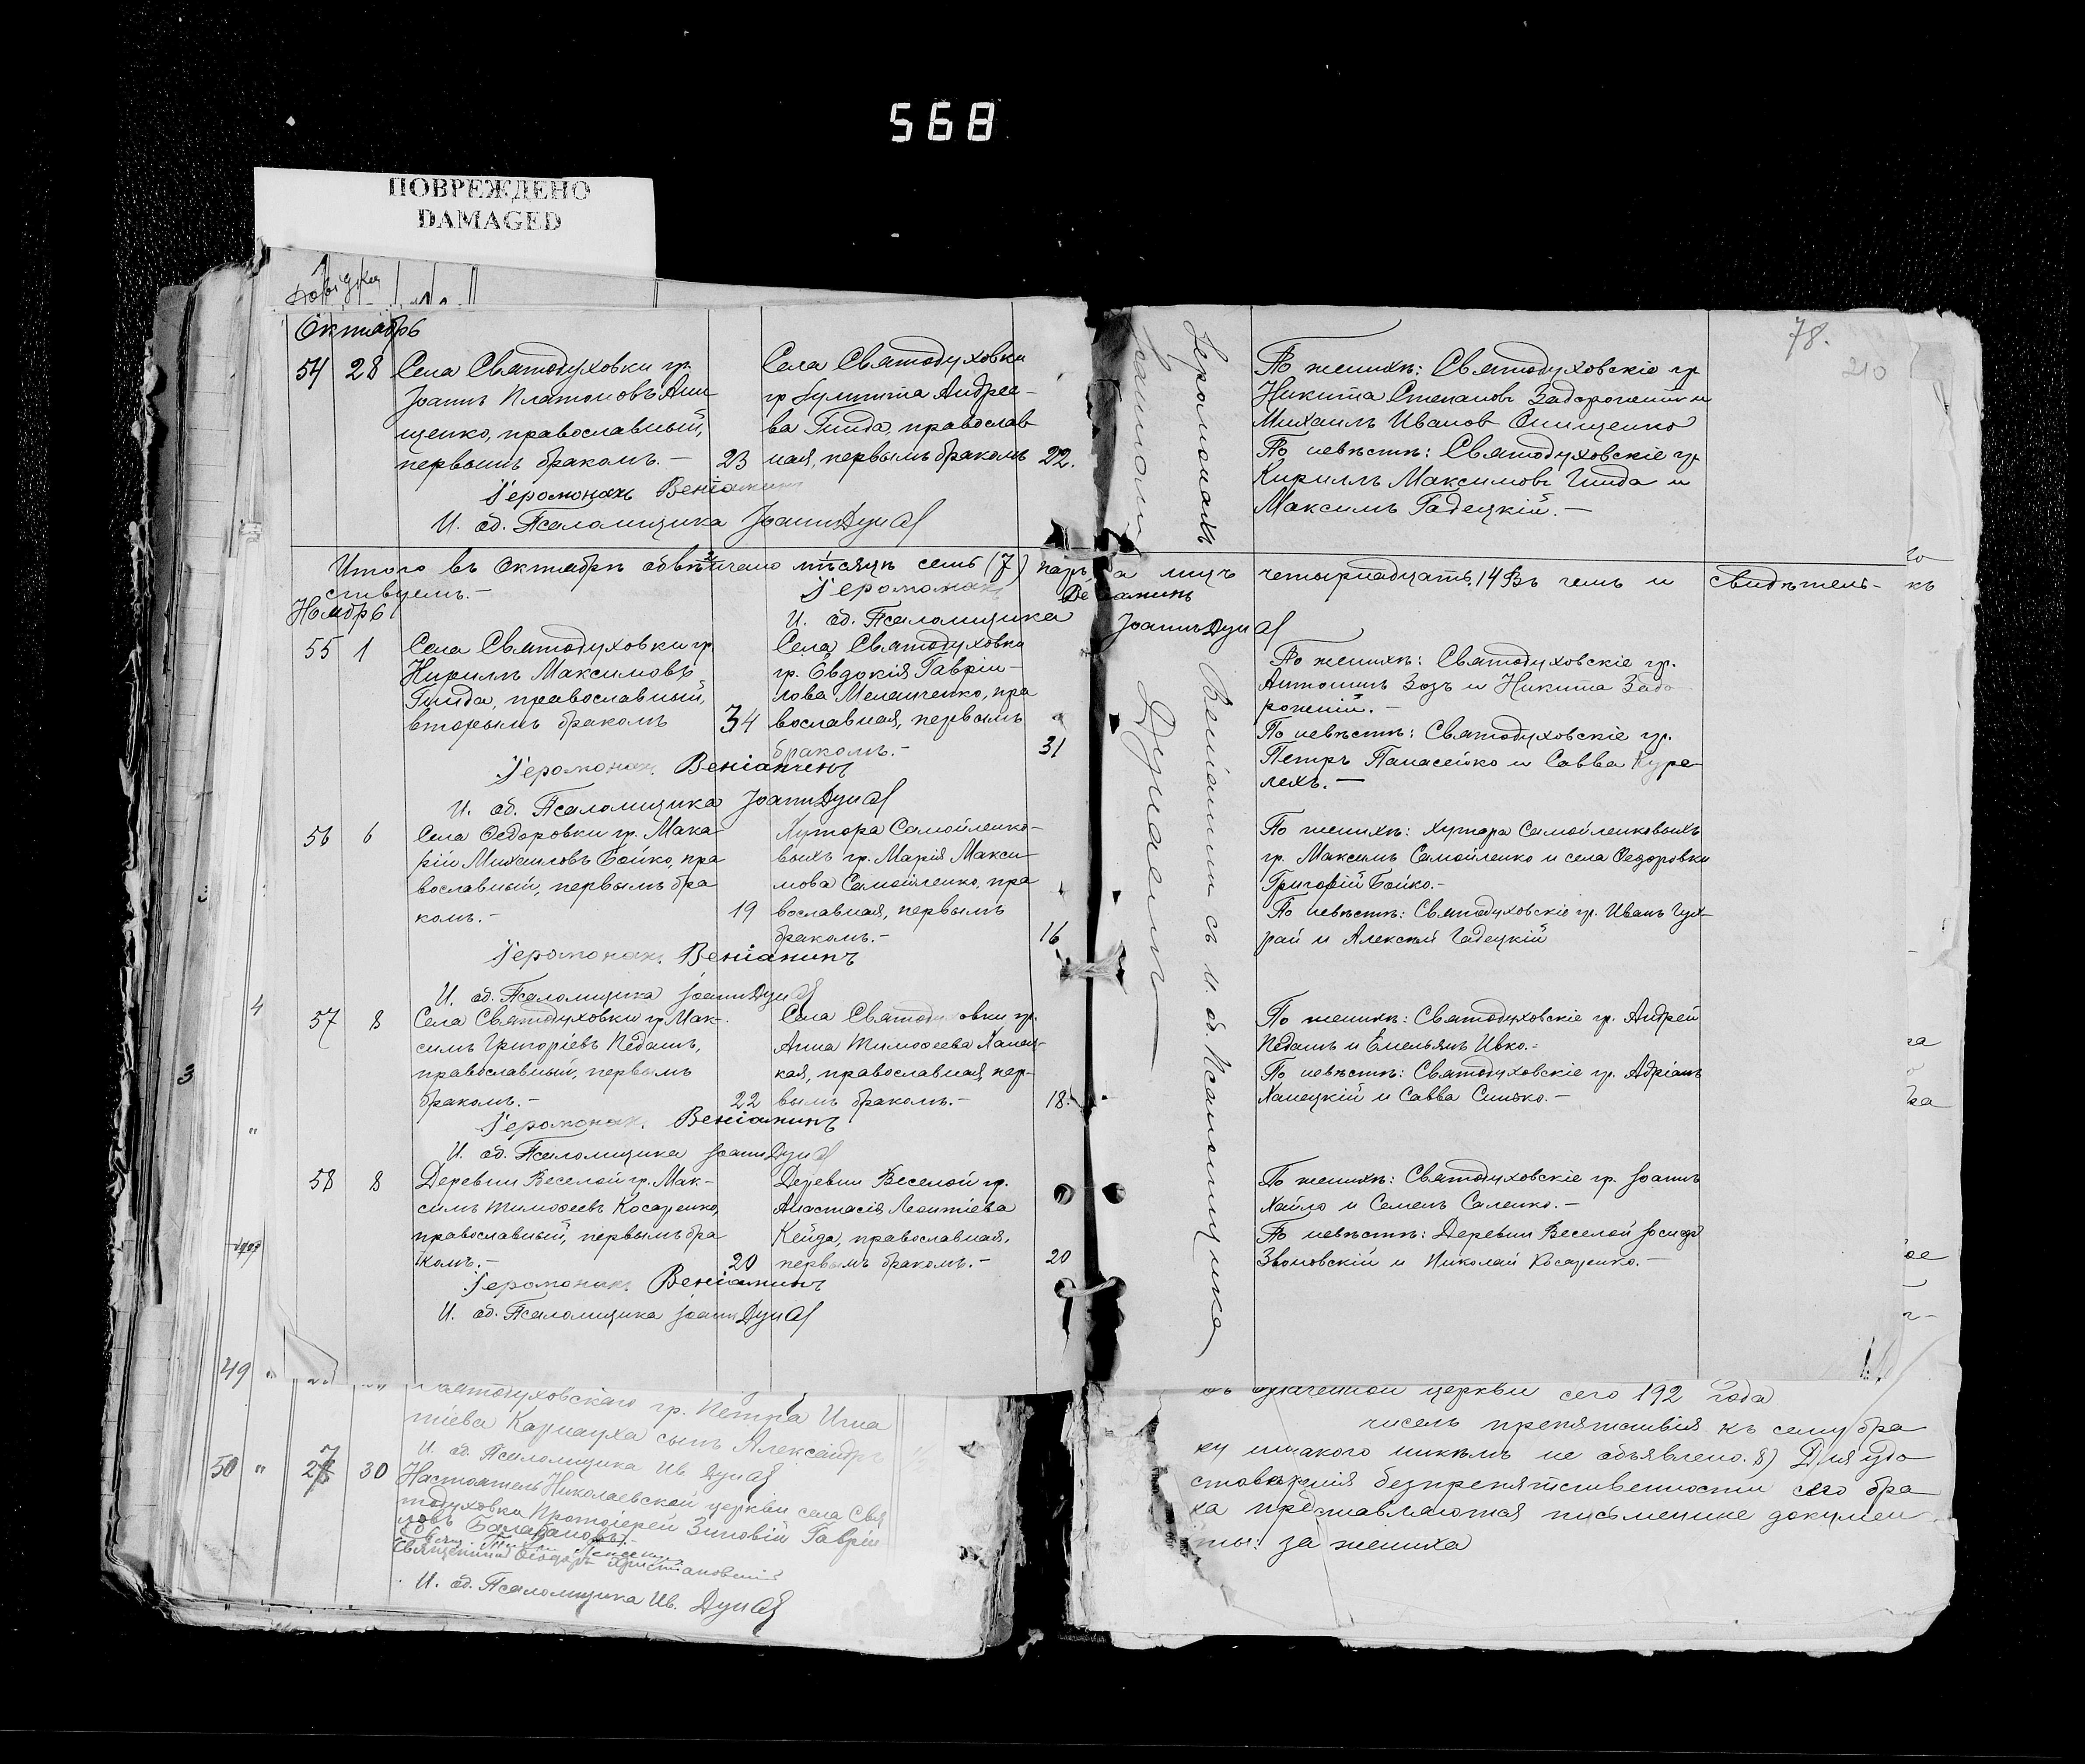 568
ПОВРЕЖДЕНО
DAMAGED
78.
210
Октябрь
54 28 Села Святодуховки гр.
Іоаннъ Платоновъ Они
щенко, православный,
первымъ бракомъ. – 23
Села Святодуховки
гр Іулитта Андрее-
ва Гнида, православ
ная, первымъ бракомъ 22.
Іеромонахъ Веніаминъ
И. об. Псаломщика Іоаннъ Дунай
По женихѣ: Святодуховскіе гр
Никита Степановъ Задорожній и
Михаилъ Ивановъ Онищенко
По невѣстѣ: Святодуховскіе гр
Кириллъ Максимовъ Гнида и
Максимъ Гадецкій. –
Итого въ Октябрѣ обвѣнчано мѣсяцѣ семь (7) паръ а лицъ четырнадцать. 14 Въ чемъ и свидѣтель-
ствуемъ. –
Іеромонахъ Веніаминъ
И. об. Псаломщика Іоаннъ Дунай
Ноябрь
55 1 Села Святодуховки гр
Кириллъ Максимовъ
Гнида, православный,
вторымъ бракомъ 34
Села Святодуховки
гр. Евдокія Гавріи-
лова Меланченко, пра
вославная, первымъ
бракомъ. – 31
Іеромонах. Веніаминъ
И. об. Псаломщика Іоаннъ Дунай
По женихѣ: Святодуховскіе гр.
Антонинъ Зозъ и Никита Задо
рожній. –
По невѣстѣ: Святодуховскіе гр.
Петръ Панасейко и Савва Куре-
лехъ. –
56 6 Села Ѳедоровки гр. Мака
рій Михаиловъ Бойко, пра
вославный, первымъ бра
комъ. – 19
Хутора Самойленко-
выхъ гр. Марія Макси-
мова Самойленко, пра
вославная, первымъ
бракомъ. – 16
Іеромонах. Веніаминъ
И. об. Псаломщика Іоаннъ Дунай
По женихѣ: Хутора Самойленковыхъ
гр. Максимъ Самойленко и села Ѳедоровки
Григорій Бойко. –
По невѣстѣ: Святодуховскіе гр. Иванъ
и Алексѣй Гадецкій
57 8 Села Святодуховки гр. Мак-
симъ Григоріевъ Педашъ,
православный, первымъ
бракомъ. – 22
Села Святоду овки гр.
Анна Тимоѳеева Ханец-
кая, православная, пер-
вымъ бракомъ. – 18.
Іеромонах. Веніаминъ
И. об. Псаломщика Іоаннъ Дунай
По женихѣ: Святодуховскіе гр. Андрей
Педашъ и Емельянъ Ивко. –
По невѣстѣ: Святодуховскіе гр. Адріанъ
Ханецкій и Савва Синько. –
58 8 Деревни Веселой гр. Мак-
симъ Тимоѳеевъ Косаренко,
православный, первымъ бра
комъ. – 20
Деревни Веселой гр.
Анастасія Леонтіева
Кейда, православная,
первымъ бракомъ. – 20
Іеромонах. Веніаминъ
И. об. Псаломщика Іоаннъ Дунай
По женихѣ: Святодуховскіе гр. Іоаннъ
Хайло и Семенъ Саленко. –
По невѣстѣ: Деревни Веселой Іосифъ
Звоновскій и Николай Косаренко. –
Іеромонахъ Веніаминъ съ и. об. Псаломщика
Іоанномъ Дунаемъ
49
вятодуховскаго гр. Петра Игна
тіева Карнауха сынъ Александръ
И. об. Псаломщика Ив. Дунай
50 " 27 30 Настоятель Николаевской церкви села Свя
тодуховки Протоіерей Зиновій Гаврiи
ловъ Балабановъ. –
Священникъ Ѳеодоръ
И. об. Псаломщика Ив. Дунай
означенной церкви сего 192 года
чиселъ препятствія къ сему бра
ку никакого никѣмъ не объявлено. 8) Для удо
стовѣренія безпрепятственности сего бра
ка представляются письменные докумен
ты: за жениха